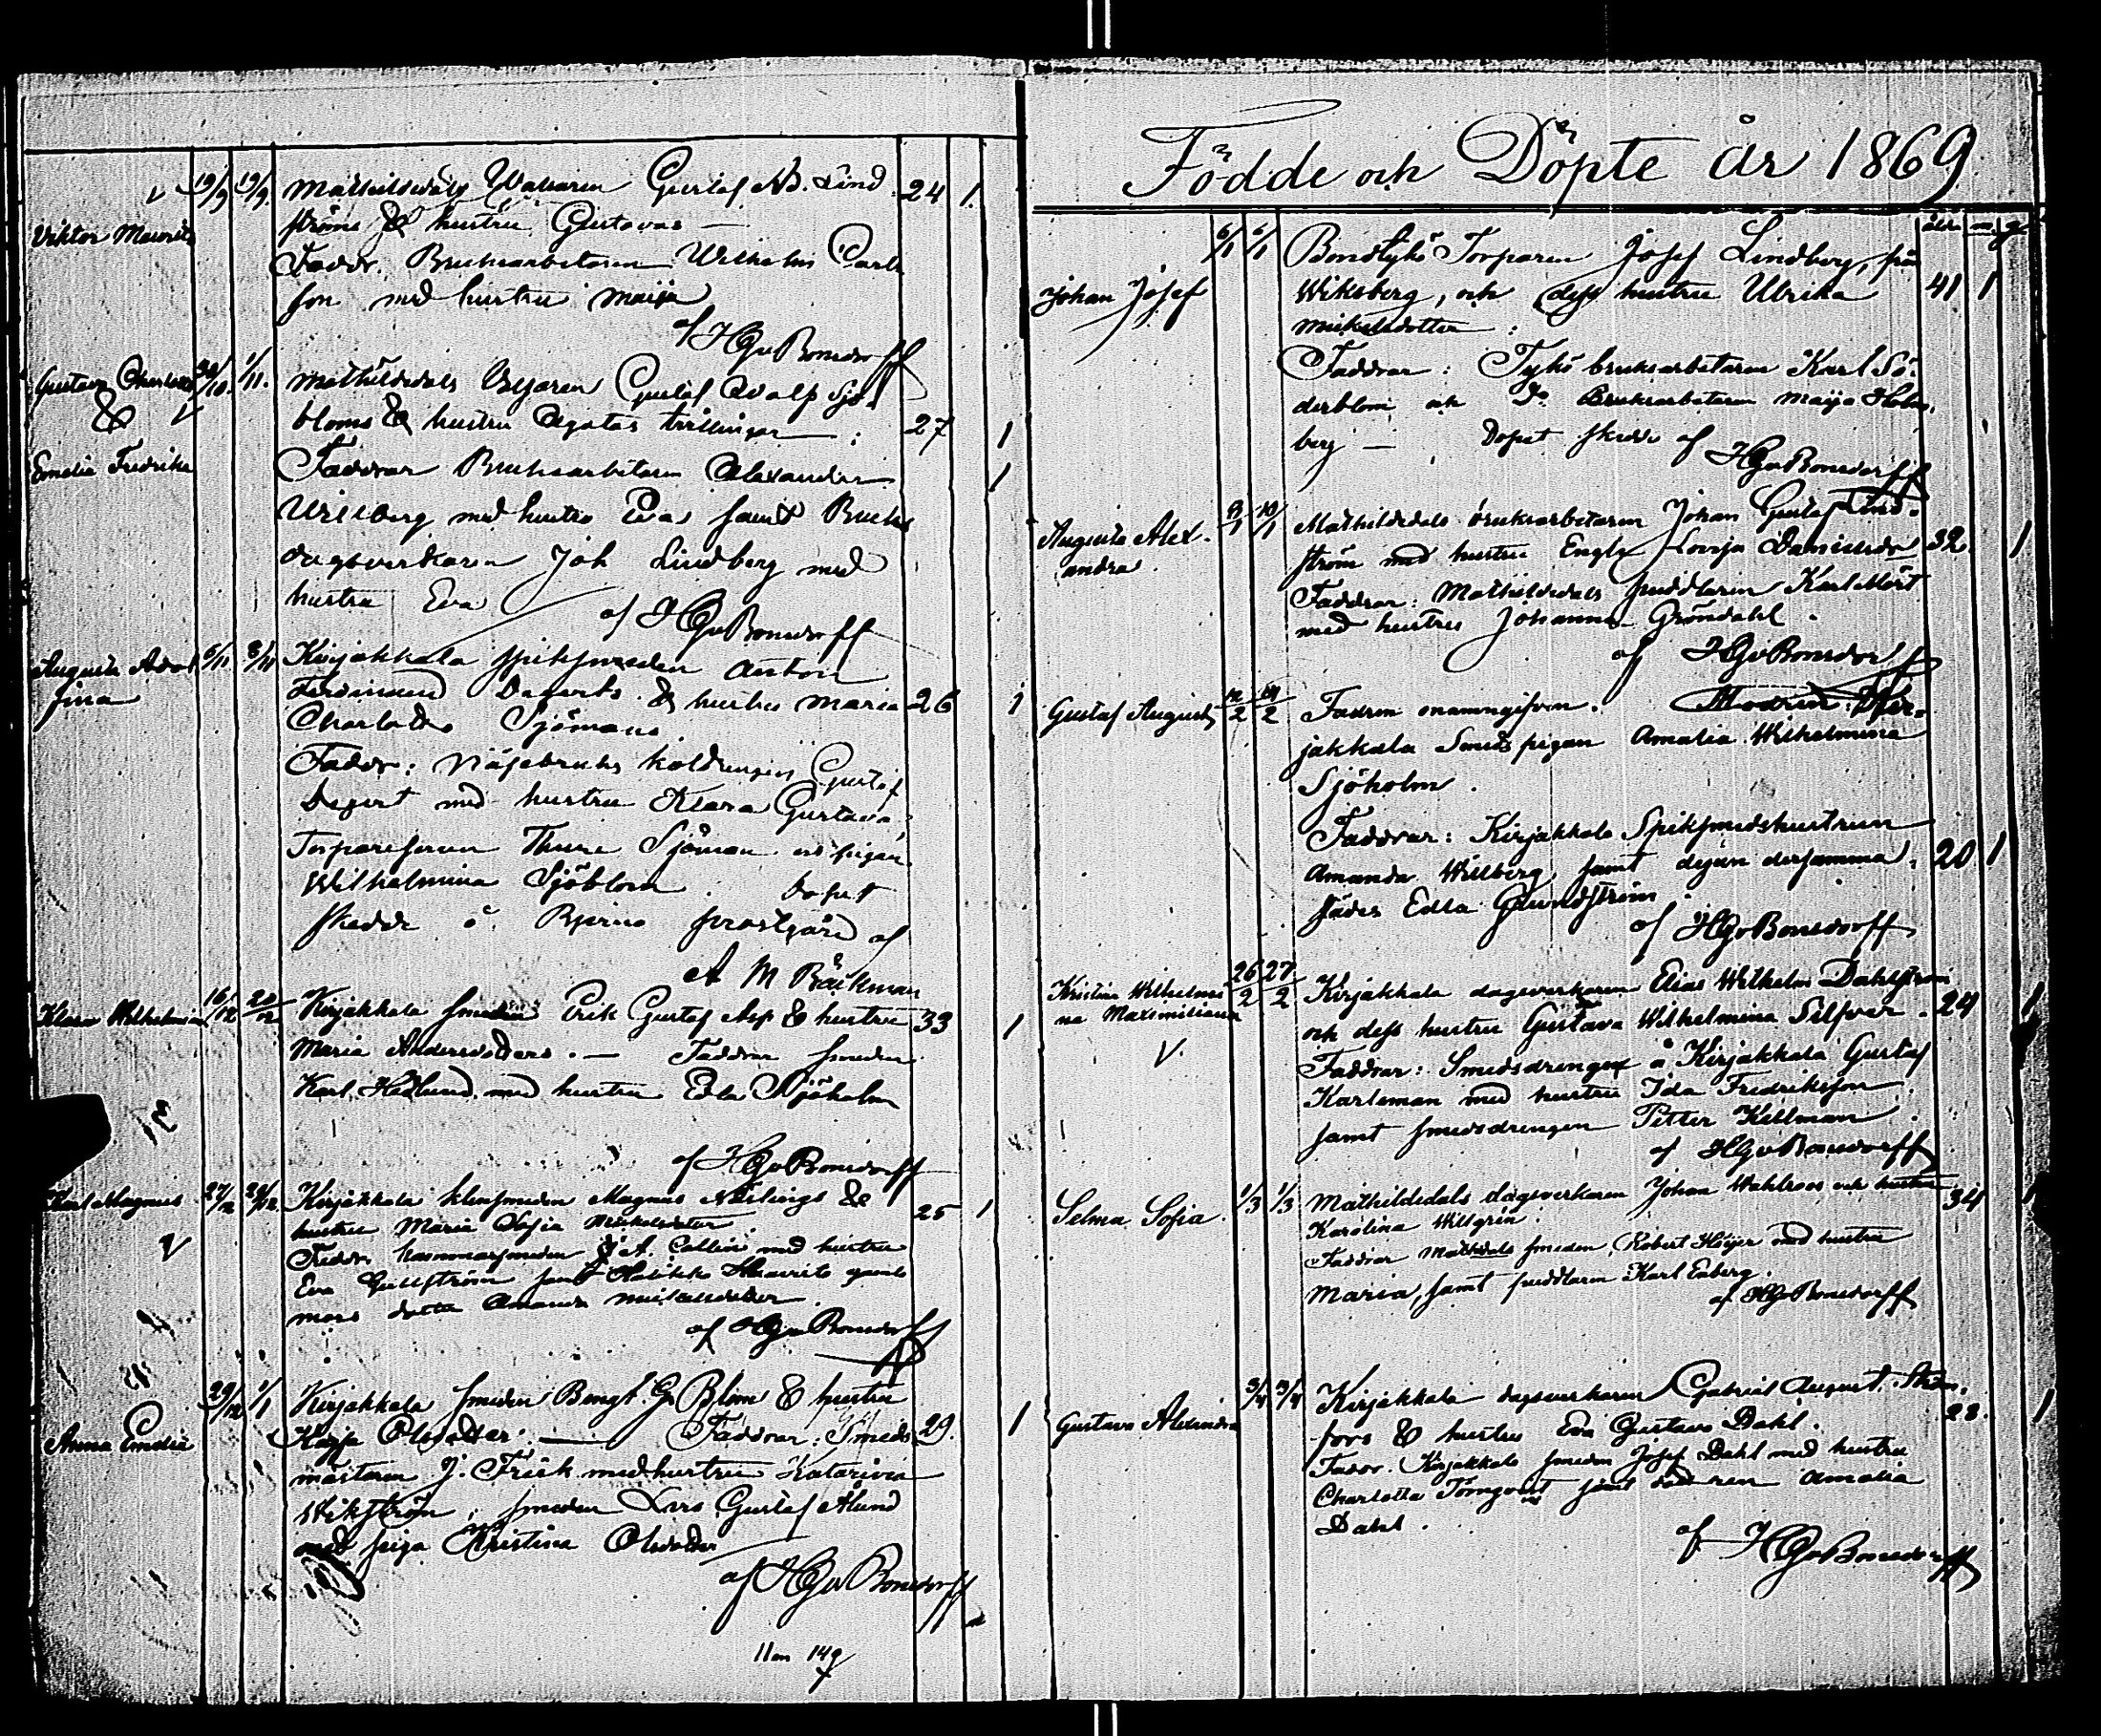 19/9 19/9 Mathildedals Gustaf Ad. Lind 24 1
ströms & hustru Gustavas —
Viktor Mauritz
Faddr. Bruksarbetaren Wilhelm Carls
son med hustru Maija
af HGvBonsdorff
Gustava Charlotta 30/10. 1/11. Mathildedals Gustaf Adolf Sjö-
&
bloms & hustru Agatas tvillingar — : 27 1
Emelia Fredrika Faddrar Bruksarbetaren Alexander 1
Willberg med hustru Eva samt Bruks
dagsverkaren Joh Lindberg med
hustru Eva af HGvBonsdorff
Augusta Adol 6/11 8/11 Kirjakkala spiksmeden Anton
fina Ferdinand Degerts & hustru Maria 26 1
Charlotta Sjömans
Faddr: Näsebruks koldrengen Gustaf
Degert med hustru Klara Gustava,
Torparesonen Thure Sjöman och pigan
Wilhelmina Sjöblom. Dopet
skedde å Bjerno prostgård af
A M Bäckman
Klara Wilhelmina 16/12 20/12 Kirjakkala smeden Erik Gustaf Asp & hustru 33 1
Maria Andersdotters. — Faddrar smeden
Karl Hedlund med hustru Edla Sjöholm
af HGvBonsdorff
Karl Magnus 27/12 29/12 Kirjakkala smeden Magnus & 25 1
hustru Maria Sofia
Faddr hammarsmeden A. Collin med hustru
Eva Gullström samt
mors dotter Amanda
af HGvBonsdorff
29/12 1/1 Kirjakkala smeden Bengt G. Blom & hustru
Anna Emelia Kajsa Olsdotter. — Faddrar: Smeds 29. 1
mästaren J. Frisk med hustru Katarina
Wikström, smeden Lars Gustaf Ålund
med piga Kristina Olsdotter
af HGvBonsdorff
11 m 14 q
Födde och Döpte år 1869
åldr m q
6/1 6/1 Bondtykö Torparen Josef Lindberg, från
Johan Josef Wiksberg, och dess hustru Ulrika 41 1
Mickelsdotter :
Faddrar: Tykö bruksarbetaren Karl Sö-
derblom och Do Bruksarbetaren Maija Holm-
berg — Dopet skedde af
HGvBonsdorff
Augusta Alex- 9/1 10/1 Mathildedals bruksarbetaren Johan Gustaf Lind-
andra ström med hustru Engla Lovisa Danielsdr 32. 1
Faddrar: Mathildedals puddlaren Karl Mört
med hustru Johanna Gröndahl.
af HGvBonsdorff
Gustaf August 12/2 14/2 Fadren onamngifven. Modren: Kir-
jakkala Smeds pigan Amalia Wilhelmina
Sjöholm.
Faddrar: Kirjakkala Spiksmedshustrun
Amanda Willberg samt dejan dersamma- 20 1
städes Edla Grundström
af HGvBonsdorff
Kristina Wilhelmi- 26/2 27/2 Kirjakkala dagsverkaren Elias Wilhelm Dahlström
na Maximiliana och dess hustru Gustava Wilhelmina Silfver. 24 1
Faddrar: Smedsdrengen å Kirjakkala Gustaf
Karleman med hustru Ida Fredriksson
samt smedsdrengen Petter Kellman.
af HGvBonsdorff
Selma Sofia. 1/3 1/3 Mathildedals dagsverkaren Johan Wahlroos och hustru 34 1
Karolina Willgrén.
Faddrar Mathdals smeden Robert Höijer med hustru
Maria, samt puddlaren Karl Enberg.
af HGvBonsdorff
3/4 3/4 Kirjakkala dagsverkaren Gabriel August Ström-
Gustava Alexandra fors & hustru Eva Gustava Dahl. 28. 1
Faddr. Kirjakkala smeden Josef Dahl med hustru
Charlotta Törnqvist samt Amalia
Dahl.
af HGvBonsdorff